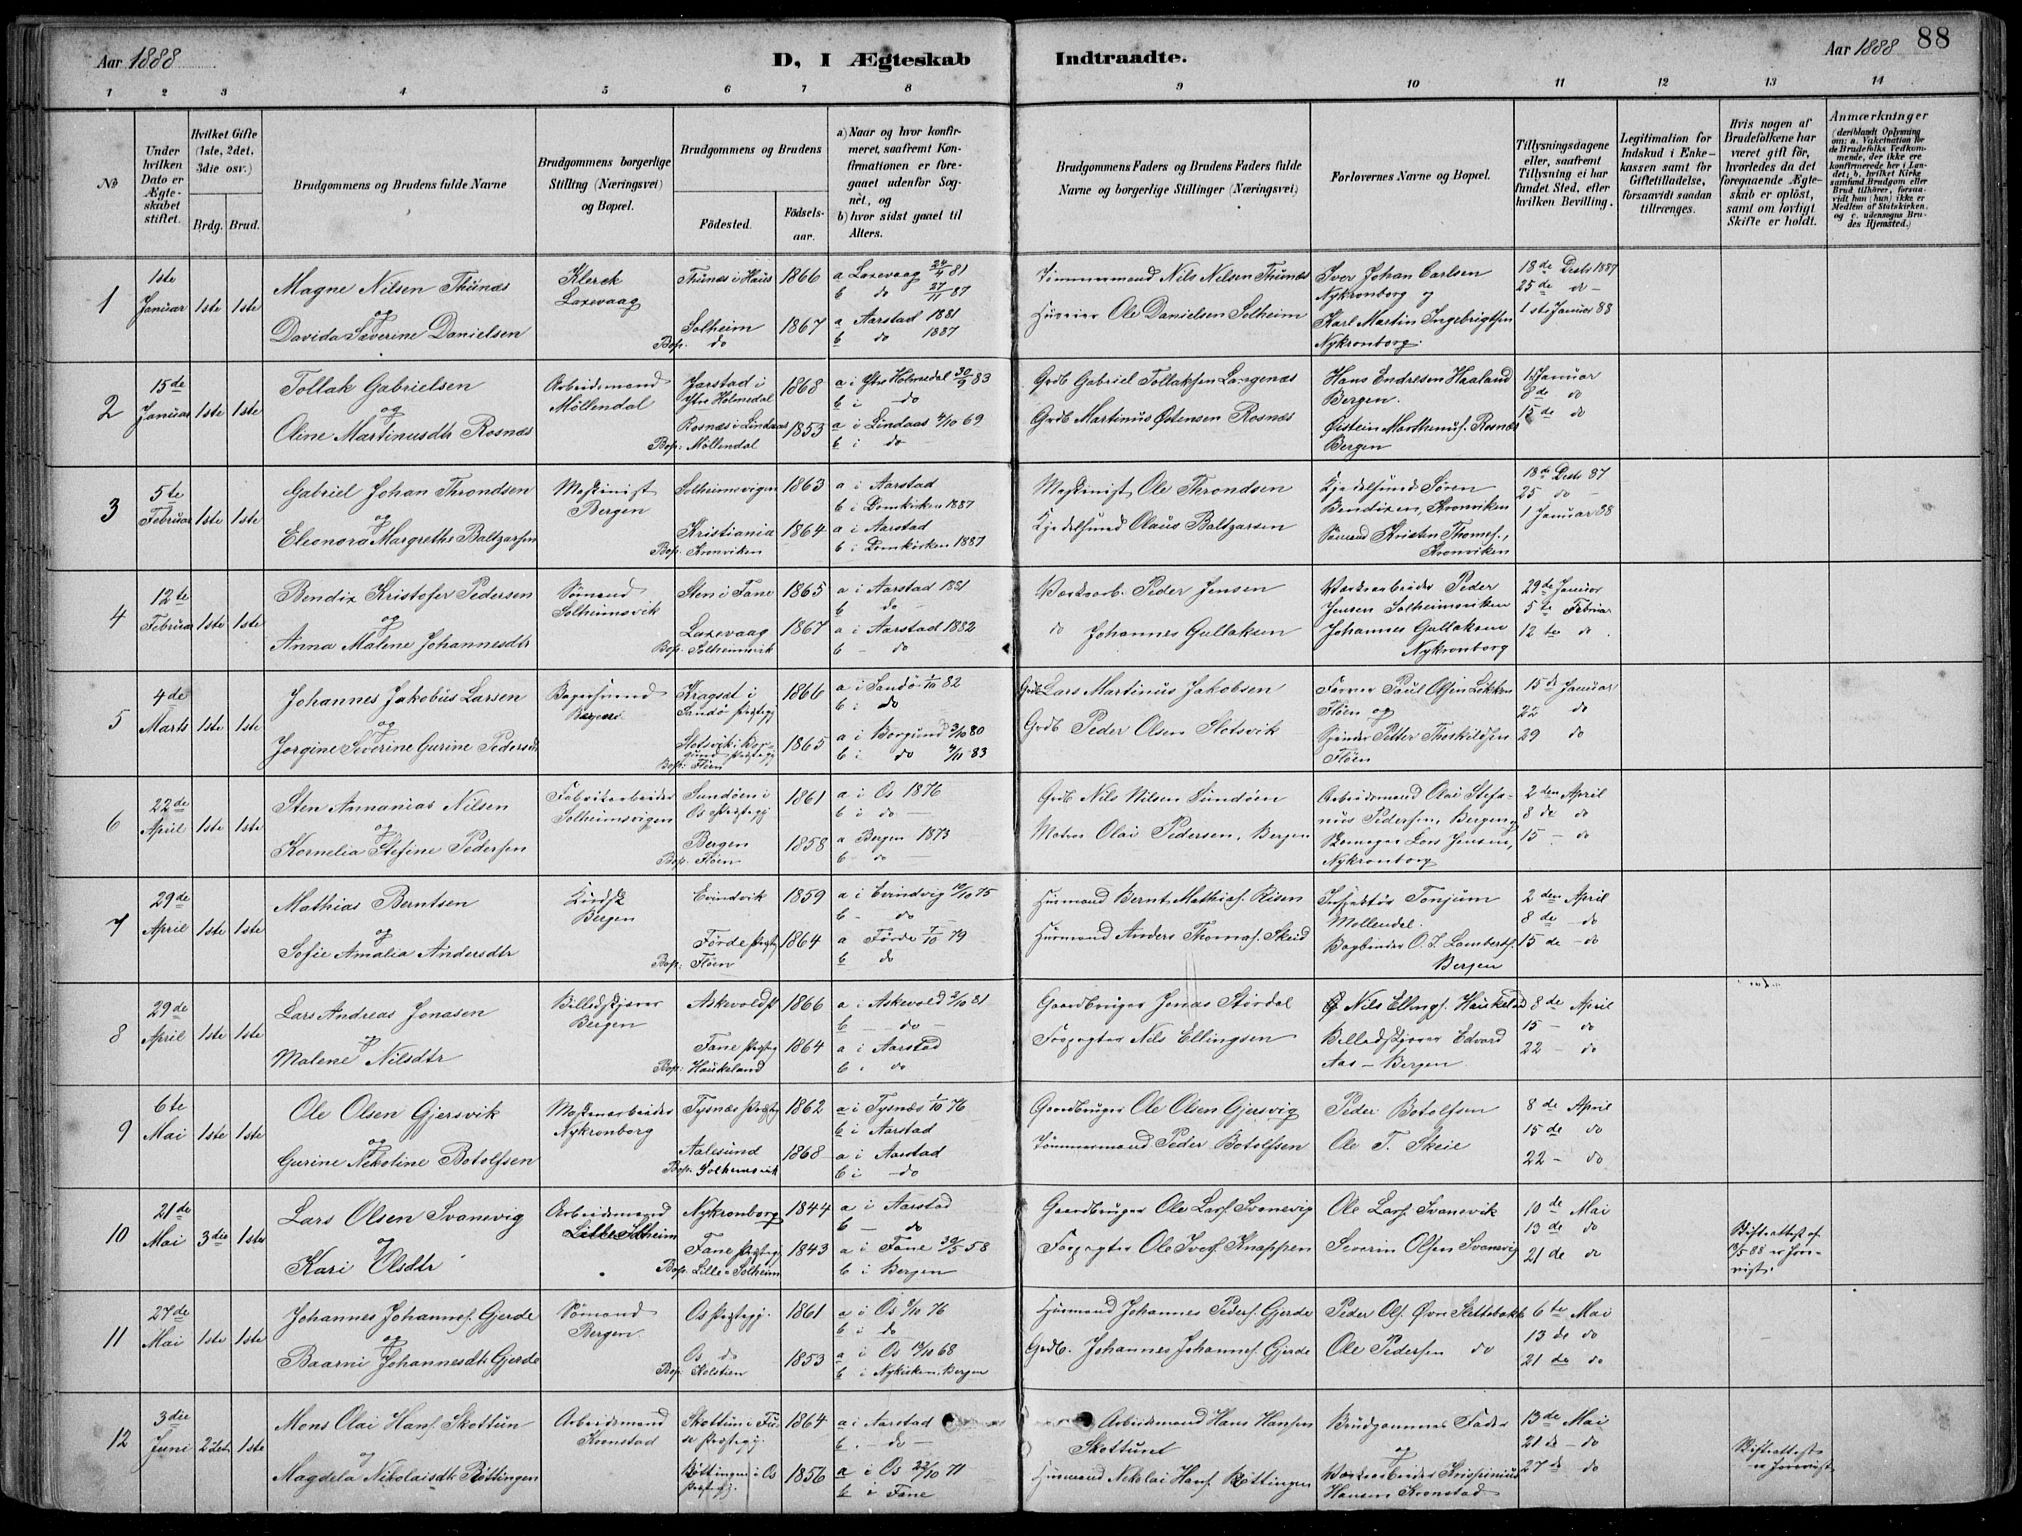 Aar 1888
D, I Ægteskab Indtraadte.
Aar 1888 88
1 2 3 4 5 6 7 8 9 10 11 12 13 14
No
Under hvilken Dato er Ægteskabet stiftet.
Hvilket Gifte (1ste, 2det, 3die osv.)
Brdg. Brud.
Brudgommens og Brudens fulde Navne
Brudgommens borgerlige Stilling (Næringsvei) og Bopæl.
Brudgommens og Brudens
Födested.
Födsels-aar.
a) Naar og hvor konfirmeret, saafremt Konfirmationen er foregaaet udenfor Sognet, og
b) hvor sidst gaaet til Alters.
Brudgommens Faders og Brudens Faders fulde Navne og borgerlige Stillinger (Næringsvei)
Forlovernes Navne og Bopæl.
Tillysningsdagene eller, saafremt Tillysning ei har fundet Sted, efter hvilken Bevilling.
Legitimation for Indskud i Enkekassen samt for Giftetilladelse, forsaavidt saadan tiltrænges.
Hvis nogen af Brudefolkene har været gift før, hvorledes da det foregaaende Ægteskab er oplöst, samt om lovligt Skifte er holdt.
Anmærkninger
(deriblandt Oplysning om: a. Vakcination for de Brudefolks Vedkommende, der ikke ere konfirmerede her i Landet; b. hvilket Kirkesamfund Brudgom eller Brud tilhører, forsaavidt han (hun) ikke er Medlem af Statskirken, og c. udensogns Brudes Hjemsted.)
1 1ste Januar 1ste 1ste
Magne Nilsen Thunæs
og
Davida Severine Danielsen
Klerck
Laxevaag
Thunæs i Haus 1866
Solheim 1867
Bop: do
a Laxevaag 24/4 81
b do 27/11 87
a Aarstad 1881
b do 1887
Tømmermand Nils Nilsen Thunæs
Ole Danielsen Solheim
Iver Johan Carlsen
Nykronborg og
Karl Martin Ingebrigtsen
Nykronborg.
18de Decbr 1887
25de do
1ste Januar 88
2 15de Januar 1ste 1ste
Tollak Gabrielsen
og
Oline Martinusdtr Rosnæs
Arbeidsmand
Møllendal
Jarstad i
Ytre Holmedal 1868
Rosnæs i Lindaas 1853
Bop: Møllendal
a i Ytre Holmedal 30/9 83
b i do
a i Lindaas 4/10 69
b i do
Grdb Gabriel Tollaksen Langenæs
Grdb Martinus Østensen Rosnæs
Hans Endresen Haaland
Bergen.
Øistein Marthinus. Rosnæs
Bergen
1 Januar
8de do
15de do
3 5te Februar 1ste 1ste
Gabriel Johan Throndsen
og
Eleonora Margrethe Baltzarsen
Maskinist
Bergen
Solheimsvigen 1863
Kristiania 1864
Bop: Kronviken
a i Aarstad
b i Domkirken 1887
a i Aarstad
b i Domkirken 1887
Maskinist Ole Throndsen
Kjedelsmed Olaus Baltzarsen
Kjedelsmed Søren
Bendixen, Kronviken
Sømand Kristen Thomes.,
Kronviken
18de Decbr 87
25 do
1 Januar 88
4 12te Februar 1ste 1ste
Bendix Kristofer Pedersen
og
Anna Malene Johannesdtr
Sømand
Solheimsvik
Sten i Fane 1865
Laxevaag 1867
Bop: Solheimsvik
a i Aarstad 1881
b do
a i Aarstad 1882
b - do
Værksarb. Peder Jensen
do Johannes Gullaksen
Værksarbeider Peder
Jensen Solheimsviken
Johannes Gullaksen
Nykronborg
29de Januar
5te Februar
12te do
5 4de Marts 1ste 1ste
Johannes Jakobus Larsen
og
Jorgine Severine Gurine Pedersd
Bagersvend
Bergen
Kragsæt i
Sandø Præstegj 1866
Slotsvik i Bor-
gund Præstegj 1865
Bop: Fløen
a i Sandø 1/10 82
b i do
a i Borgund 3/10 80
b i do 4/11 83
Grdb Lars Martinus Jakobsen
Grdb Peder Olsen Slotsvik
Farver Poul Olsen Løkken
Fløen og
Petter Thorkildsen
Fløen
15de Januar
22 do
29 do
6 22de April 1ste 1ste
Sten Annanias Nilsen
og
Kornelia Stefine Pedersen
Fabrikarbeider
Solheimsvigen
Sundøen i
Os Præstegj 1861
Bergen 1858
Bop. Fløen
a i Os 1876
b i do
a Bergen 1873
b - do
Grdb Nils Nilsen Sundøen
Matros Olai Pedersen, Bergen
Arbeidsmand Olai Stefa-
nius Pedersen, Bergen og
Skomager Lars Jensen,
Nykronborg
2den April
8de do
15 - do
7 29de April 1ste 1ste
Mathias Berntsen
og
Sofie Amalia Andersdtr
Bergen
Evindvik 1859
Førde Præstegj 1864
Bop: Fløen
a i Evindvig 10/10 75
b - do
a Førde 7/10 79
b do
Husmand Bernt Mathias. Risen
Husmand Anders Thomas. Skeid
Inspektør Tonjum
Møllendal.
Bogbinder O. I. Lamberts.
Bergen
2den April
8de - do
15de - do
8 29de April 1ste 1ste
Lars Andreas Jonasen
og
Malene Nilsdtr
Billedskjærer
Bergen
Askevold 1866
Fane Præstegj 1864
Bop: Haukeland
a i Askevold 2/10 81
b - do
a i Aarstad
b i do
Gaardbruger Jonas Stordal
Forpagter Nils Ellingsen
Nils Ellings. Haukeland
Billedskjærer Edvard
Aas - Bergen
8de April
15 - do
22 - do
9 6te Mai 1ste 1ste
Ole Olsen Gjersvik
og
Gurine Nekoline Botolfsen
Maskinarbeider
Nykronborg
Tysnæs Præstegj 1862
Aalesund 1868
Bop. Solheimsvik
a i Tysnæs 1/10 76
b i Aarstad
a i Aarstad
b i do
Gaardbruger Ole Olsen Gjersvig
Tømmermand Peder Botolfsen
Peder Botolfsen
Ole T. Skeie
8de April
15de do
22 - do
10 21de Mai 3die 1ste
Lars Olsen Svanevig
og
Kari Olsdtr
Arbeidsmand
Lille Solheim
Nykronborg 1844
Fane Præstegj 1843
Bop. Lille Solheim
a i Aarstad
b - do
a i Fane 30/5 58
b i Bergen
Gaardbruger Ole Lars. Svanevig
Forpagter Ole Ivers. Knappen
Ole Lars. Svanevik
Severin Olsen Svanevig
10de Mai
13de do
21de do
Skifteattest af
15/5 88 er fore-
vist.
11 27de Mai 1ste 1ste
Johannes Johannes. Gjerde
og
Baarni Johannesdtr Gjerde
Sømand
Bergen
Os Præstegj. 1861
Os do 1853
Bop: Kolstien
a i Os 8/10 76
b i do
a i Os 14/10 68
b i Nykirken, Bergen
Husmand Johannes Peders. Gjerde
Grdb. Johannes Johannes. Gjerde
Peder Ols. Øvre Slettebakk
Ole Pedersen do
6te Mai
13de do
21de do
12 3die Juni 2det 1ste
Mons Olai Hans. Skottun
og
Magdela Nikolaisdtr Røttingen
Arbeidsmand
Kronstad
Skottun i Fu-
se Præstegj. 1864
Røttingen i Os
Præstegj. 1856
a i Aarstad
b - do
a i Os 22/10 71
b i Fane
Arbeidsmand Hans Hansen
Skottunet
Husmand Nikolai Hans. Røttingen
Brudgommens Fader
og
Værksarbeider Krispinius
Hansen Kronstad
13de Mai
21de - do
27de do
Skifteattest
er forevist